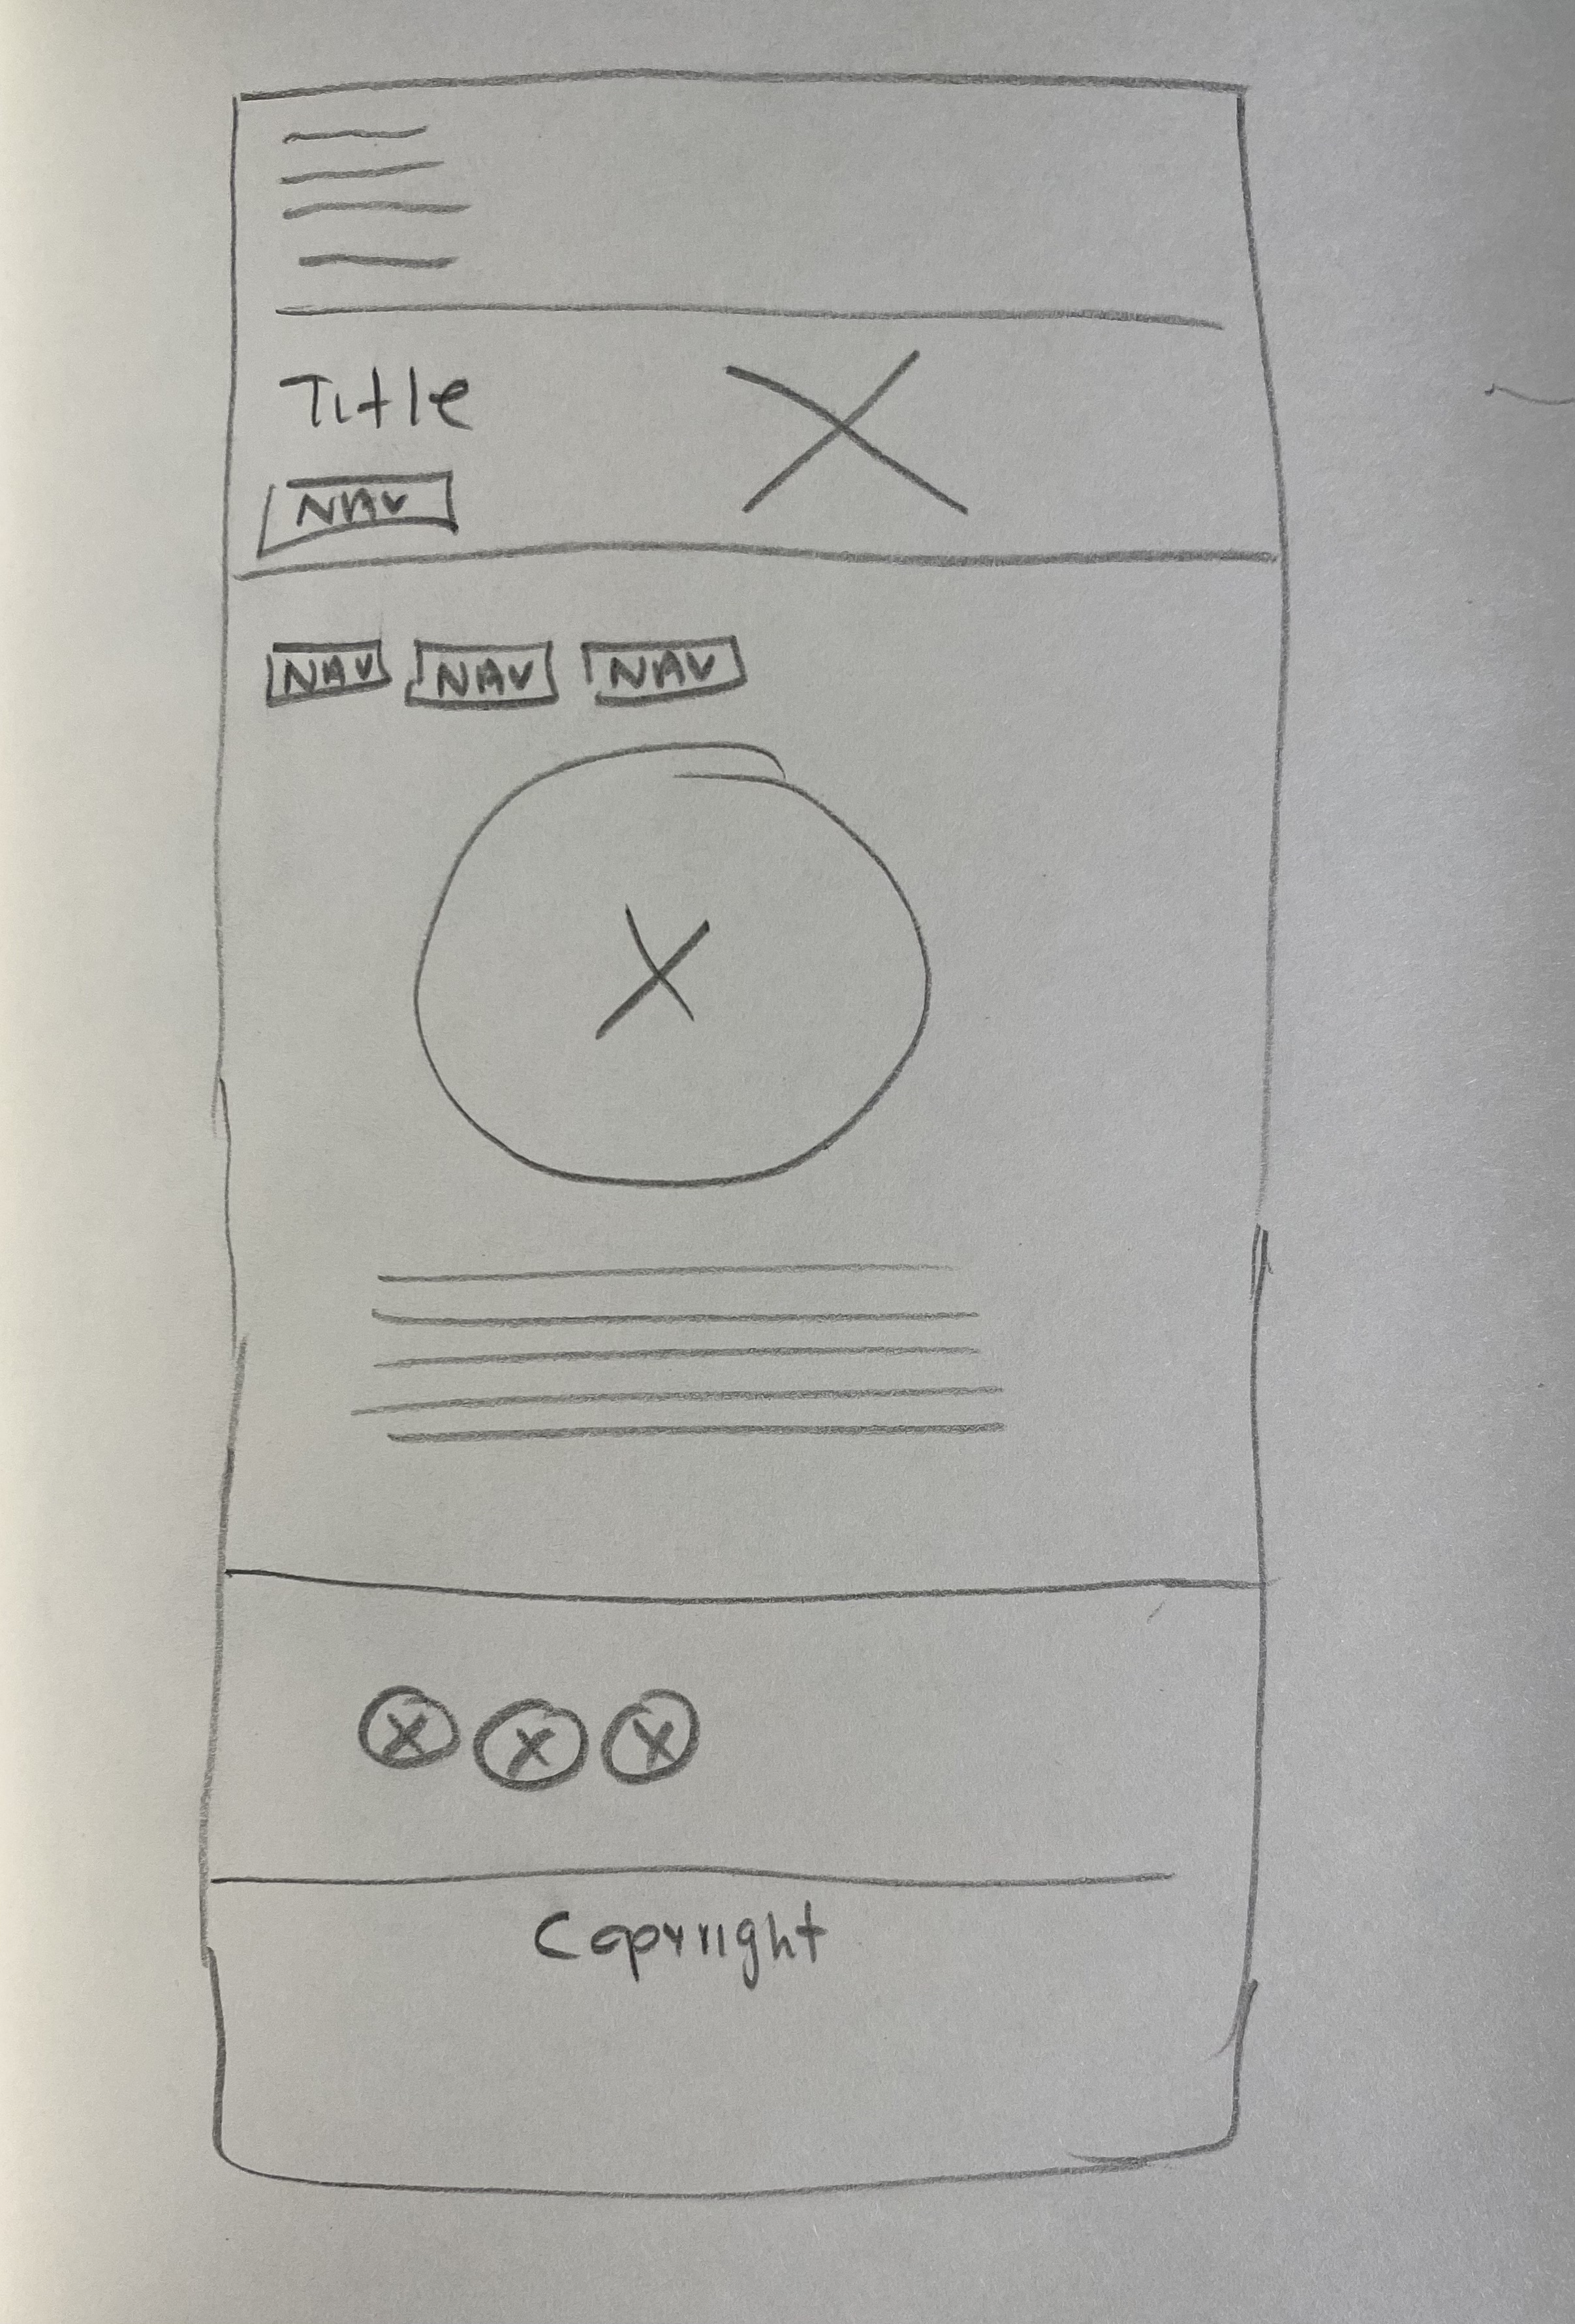 Title
NAV
NAV NAV NAV
Copyright